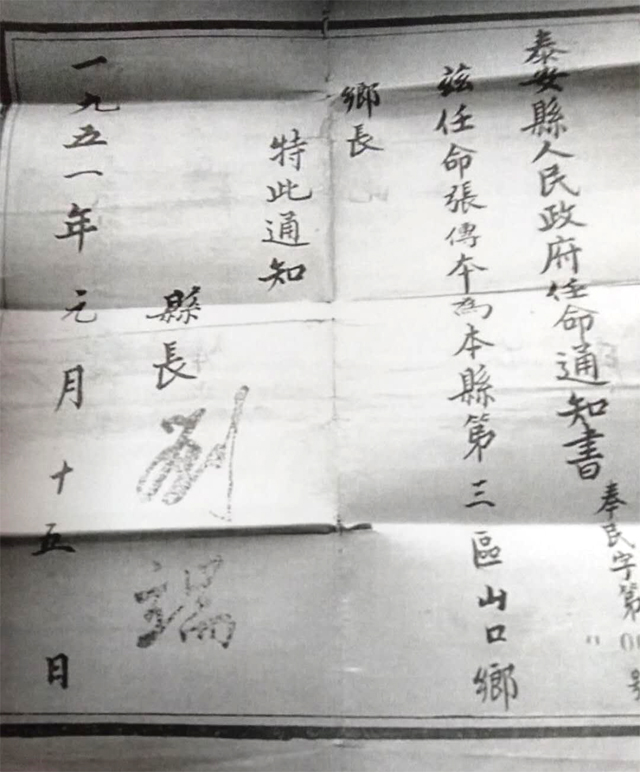 泰安縣人民政府任命通知書
奉民字第00號
茲任命張傳本為本縣第三區山口鄉
鄉長
特此通知
縣長
劉瑞
一九五一年元月十五日